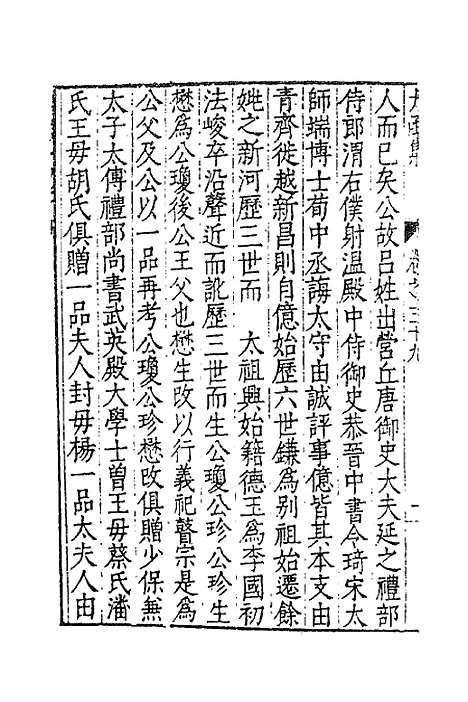 卷之三十九
人而已矣公故吕姓出營丘唐御史大夫延之禮部
侍郎渭右僕射温殿中侍御史恭晉中書令琦宋太
師端博士荀中丞誨太守由誠評事億皆其本支由
青齊徙越新昌則自億始歷六世鎌為别祖始遷餘
姚之新河歷三世而　太祖興始籍德玉為李國初
法峻卒沿聲近而訛歷三世而生公瓊公珍公珍生
懋為公瓊後公王父也懋生改以行義祀瞽宗是為
公父及公以一品再考公瓊公珍懋改俱贈少保兼
太子太傅禮部尚書武英殿大學士曽王母蔡氏潘
氏王母胡氏俱贈一品夫人封母楊一品太夫人由